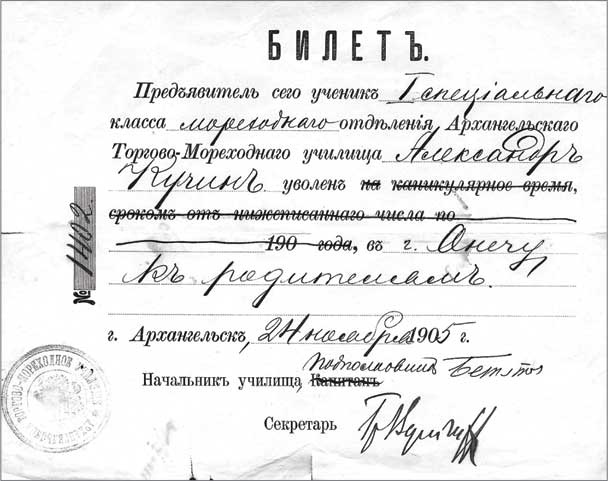 БИЛЕТЪ.
Предъявитель сего ученикъ I спецiальнаго
класса мореходнаго отдѣленiя Архангельскаго
Торгово-Мореходнаго училища Александръ
Кучинъ уволенъ на каникулярное время,
срокомъ отъ нижеписаннаго числа по
190 года, въ г. Онегу
къ родителямъ.
№ 1402.
г. Архангельскъ, 24 ноября 1905 г.
Подполковникъ
Начальникъ училища, Капитанъ
Секретарь